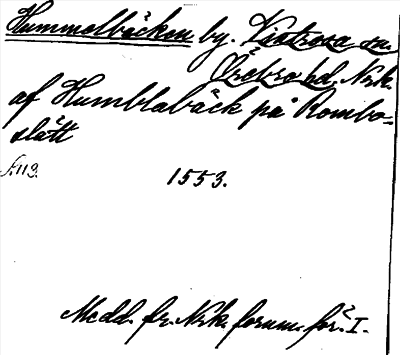 Hummelbäcken by. Vintrosa sn.
Örebro hd. Nrk.
af Humblabäck på Rombo-
slätt
s. 113.
1553.
Medd. fr. Nrk. fornm. för. I.